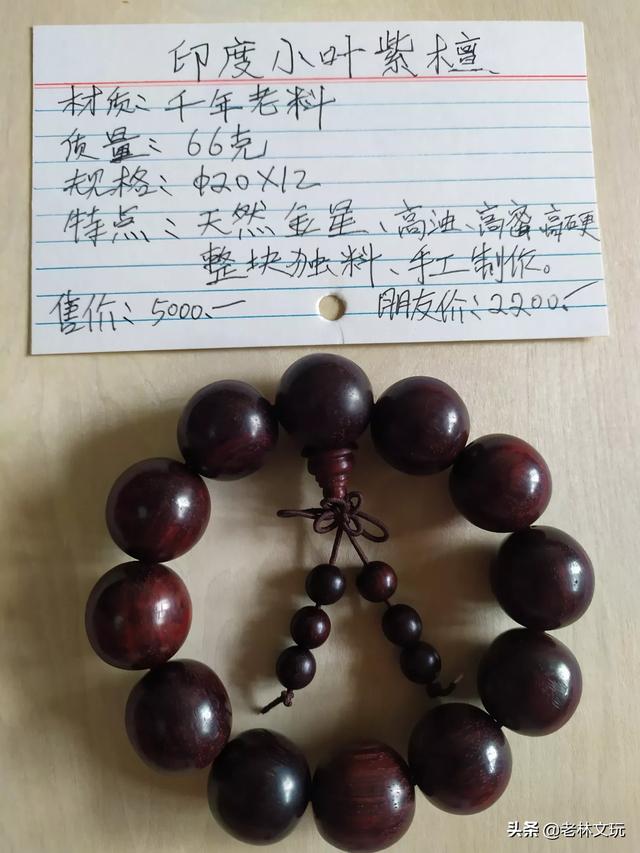 印度小叶紫檀
材质：千年老料
质量：66克
规格：φ20×12
特点：天然金星、高油、高密高硬
整块独料、手工制作。
售价：5000.一
朋友价：2200.一
头条 @老林文玩